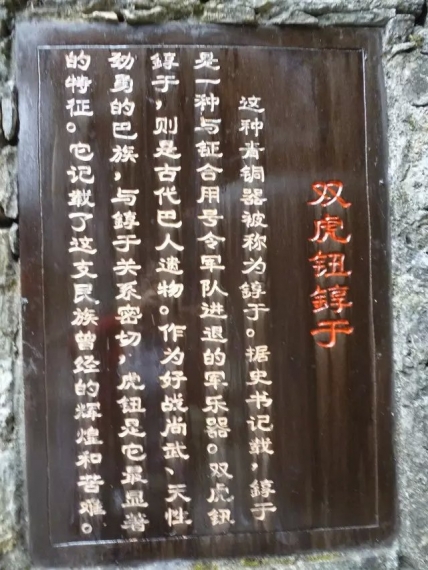 双虎钮錞于
这种青铜器被称为錞于。据史书记载，錞于
是一种与钲合用号令军队进退的军乐器。双虎钮
錞于，则是古代巴人遗物。作为好战尚武、天性
劲勇的巴族，与錞于关系密切，虎钮是它最显著
的特征。它记载了这支民族曾经的辉煌和苦难。